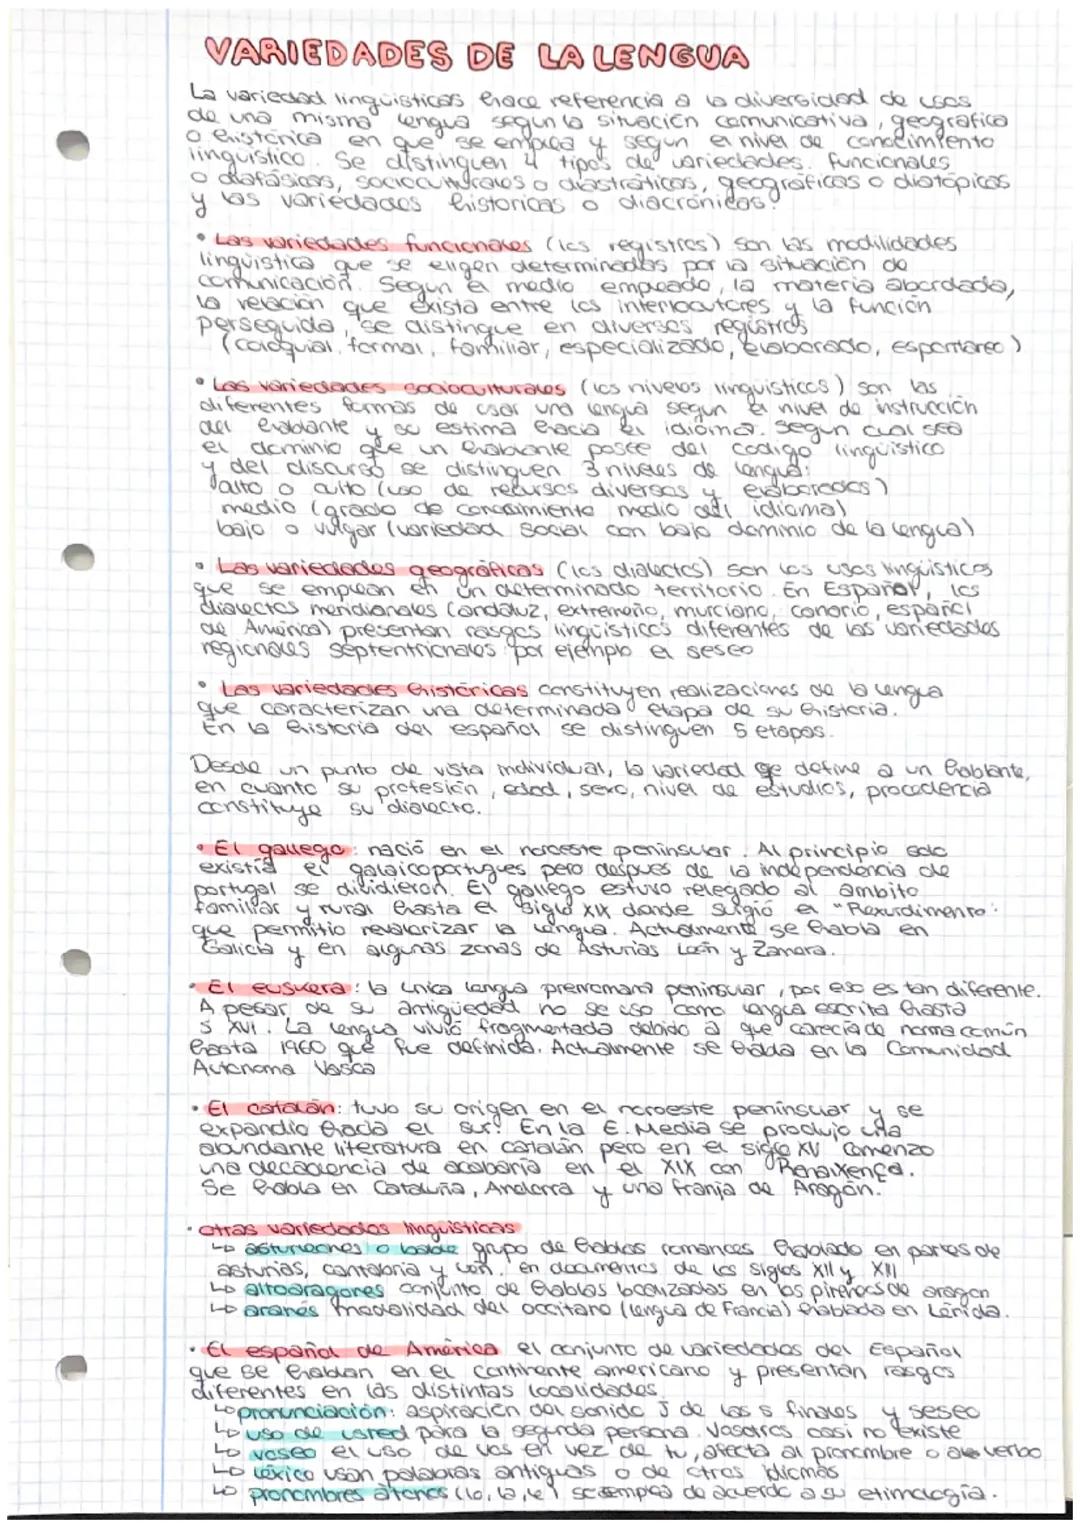 VARIEDADES DE LA LENGUA
La variedad lingüísticas hace referencia a la diversidad de usos
de una misma lengua según la situación comunicativa, geográfica
o histórica en que se emplea y según el nivel de conocimiento
lingüístico. Se distinguen 4 tipos de variedades. funcionales
o diafásicas, socioculturales o diastráticas, geográficas o diatópicas
y las variedades historicas o diacrónicas.
• Las variedades funcionales (los registros) son las modilidades
lingüistica que se eligen determinadas por la situación de
comunicación. Según el medio empleado, la materia abordada,
la relación que exista entre los interlocutores y la función
perseguida, se distingue en diversos registros
(coloquial, formal, familiar, especializado, elaborado, espontaneo)
• Las variedades socioculturales (los niveles lingüisticos) son las
diferentes formas de usar una lengua segun el nivel de instrucción
del hablante y su estima hacia el idioma. Segun cual sea
el dominio que un hablante posee del codigo lingüistico
y del discurso se distinguen 3 niveles de lengua:
alto o culto (uso de recursos diversos y elaborados)
medio (grado de conocimiento medio del idioma)
bajo o vulgar (variedad social con bajo dominio de la lengua)
• Las variedades geográficas (los dialectos) son los usos lingüisticos
que se emplean en un determinado territorio. En Español, los
dialectos meridionales (andaluz, extremeño, murciano, canario, español
de América) presentan rasgos lingüisticos diferentes de las variedades
regionales septentrionales por ejemplo el seseo
• Las variedades históricas constituyen realizaciones de la lengua
que caracterizan una determinada etapa de su historia.
En la historia del español se distinguen 5 etapas.
Desde un punto de vista individual, la variedad qe define a un hablante,
en cuanto su profesión, edad, sexo, nivel de estudios, procedencia
constituye su dialecto.
• El gallego: nació en el noroeste peninsular. Al principio solo
existía el galaicoportugues pero despues de la independencia de
portugal se dividieron. El gallego estuvo relegado al ambito
familiar y rural hasta el siglo XIX donde surgió el "Rexurdimento"
que permitio revalorizar la lengua. Actualmente se habla en
Galicia y en algunas zonas de Asturias León y Zamora.
• El euskera: la única lengua prerromana peninsular, por eso es tan diferente.
A pesar de su antigüedad no se uso como lengua escrita hasta
s XVI. La lengua vivió fragmentada debido a que carecía de norma común
hasta 1960 que fue definida. Actualmente se habla en la Comunidad
Autonoma Vasca
• El catalán: tuvo su origen en el noroeste peninsular y se
expandio hacia el sur. En la E. Media se produjo una
abundante literatura en catalán pero en el siglo XV comenzo
una decadencia de acabaría en el XIX con Renaixença.
Se habla en Cataluña, Andorra y una franja de Aragón.
• otras variedades linguisticas
↳ asturleones o bable grupo de hablas romances hablado en partes de
asturias, cantabria y León. en documentos de los siglos XII y XIII
↳ altoaragones conjunto de hablas localizadas en los pirineos de aragon
↳ aranés modalidad del occitano (lengua de Francia) hablada en Lérida.
• El español de América el conjunto de variedades del Español
que se hablan en el continente americano y presentan rasgos
diferentes en las distintas localidades
↳ pronunciación: aspiración del sonido J de las s finales y seseo
↳ uso de usted para la segunda persona. Vosotros casi no existe
↳ voseo el uso de vos en vez de tu, afecta al pronombre o al verbo
↳ Léxico usan palabras antiguas o de otros idiomas
↳ pronombres atonos (lo, la, le) se emplea de acuerdo a su etimología.